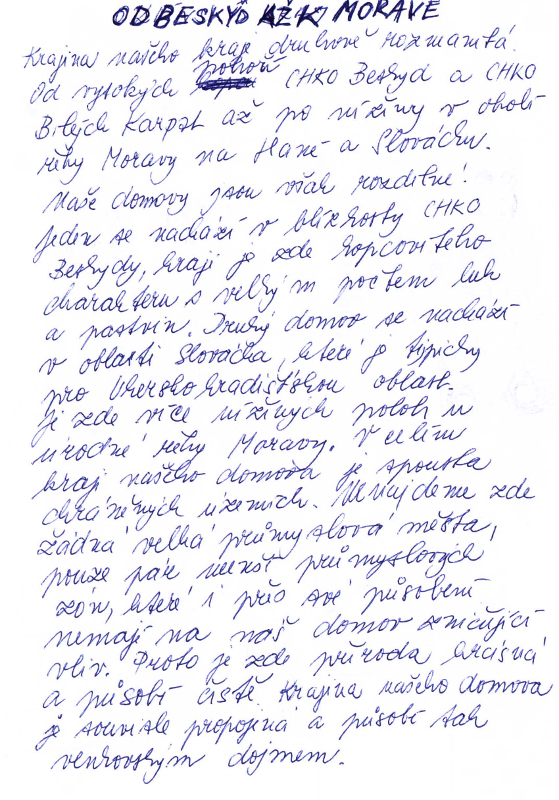 OD BESKYD AŽ K MORAVĚ
Krajina našeho kraje druhově rozmanitá.
Od vysokých pohoří CHKO Beskyd a CHKO
Bílých Karpat až po nížiny v okolí
řeky Moravy na Hané a Slovácku.
Naše domovy jsou však rozdílné!
Jeden se nachází v blízkosty CHKO
Beskydy, kraji je zde kopcovitého
charakteru s velkým počtem luk
a pastvin. Druhý domov se nachází
v oblasti Slovácka, které je typický
pro Uherskohradišťskou oblast.
Je zde více nížiných poloh u
úrodné řeky Moravy. V celém
kraji našeho domova je spousta
chráněných územích. Nenajdeme zde
žádná velká průmyslová města,
pouze pár menší průmyslových
zón, které i přes své působení
nemají na náš domov zničující
vliv. Proto je zde příroda krásná
a působí čistě. Krajina našeho domova
je souvisle propojená a působí tak
venkovským dojmem.